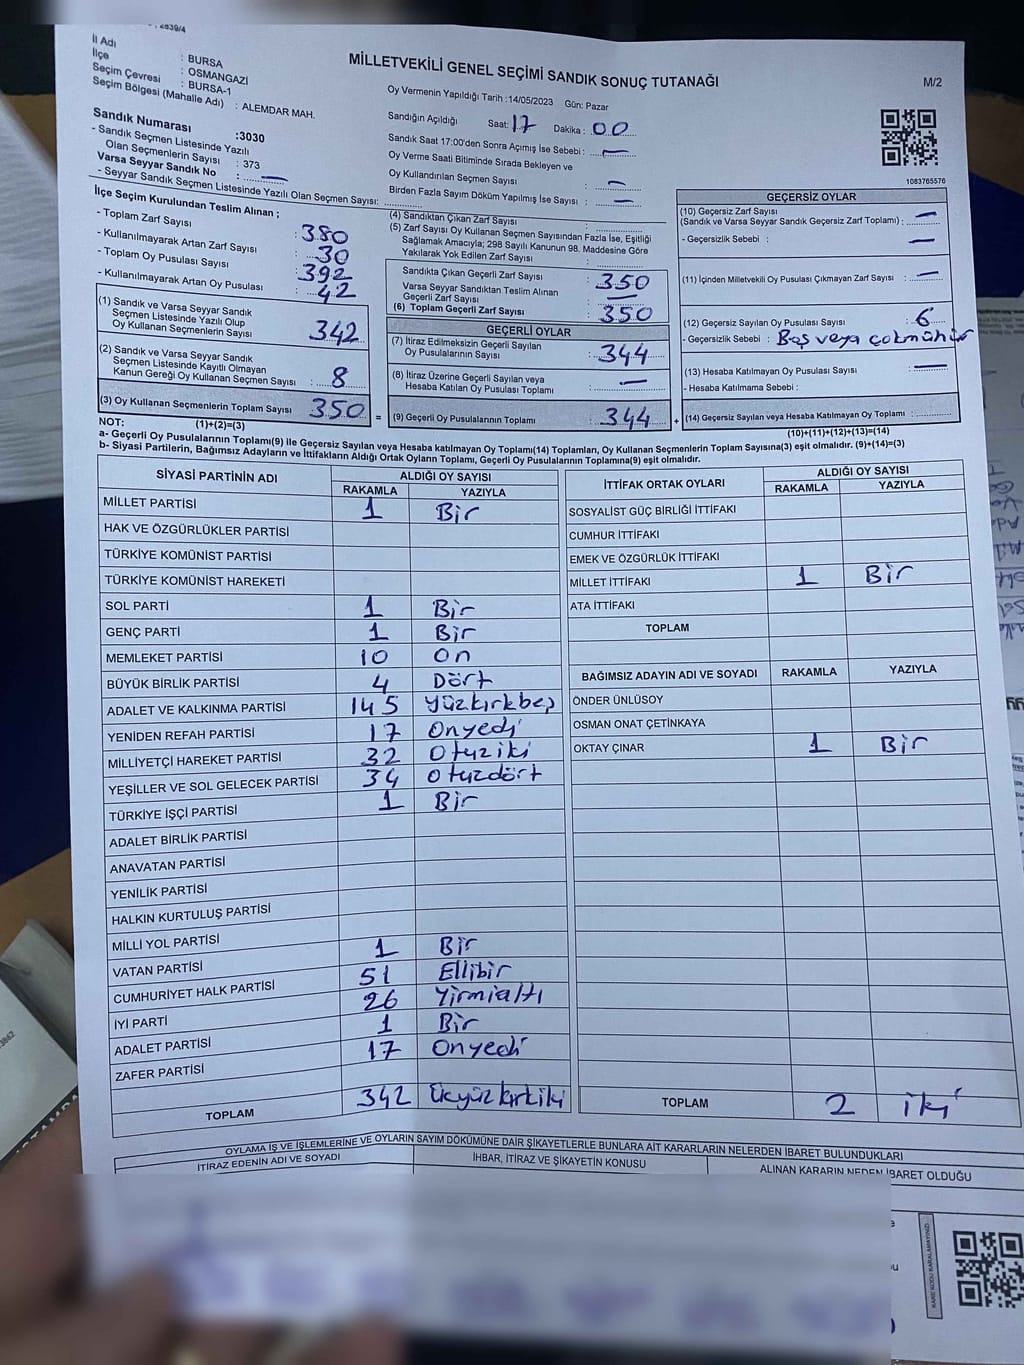 2839/4
İl Adı : BURSA
İlçe : OSMANGAZİ
Seçim Çevresi : BURSA-1
Seçim Bölgesi (Mahalle Adı) : ALEMDAR MAH.
MİLLETVEKİLİ GENEL SEÇİMİ SANDIK SONUÇ TUTANAĞI
M/2
Oy Vermenin Yapıldığı Tarih :14/05/2023 Gün: Pazar
Sandığın Açıldığı Saat: 17 Dakika : 00
Sandık Saat 17:00'den Sonra Açımış İse Sebebi : —
Oy Verme Saati Bitiminde Sırada Bekleyen ve
Oy Kullandırılan Seçmen Sayısı : —
Birden Fazla Sayım Döküm Yapılmış İse Sayısı : —
1083765576
Sandık Numarası :3030
- Sandık Seçmen Listesinde Yazılı
Olan Seçmenlerin Sayısı : 373
Varsa Seyyar Sandık No : —
- Seyyar Sandık Seçmen Listesinde Yazılı Olan Seçmen Sayısı:
İlçe Seçim Kurulundan Teslim Alınan ;
- Toplam Zarf Sayısı : 380
- Kullanılmayarak Artan Zarf Sayısı : 30
- Toplam Oy Pusulası Sayısı : 392
- Kullanılmayarak Artan Oy Pusulası : 42
(1) Sandık ve Varsa Seyyar Sandık
Seçmen Listesinde Yazılı Olup
Oy Kullanan Seçmenlerin Sayısı 342
(2) Sandık ve Varsa Seyyar Sandık
Seçmen Listesinde Kayıtlı Olmayan
Kanun Gereği Oy Kullanan Seçmen Sayısı : 8
(3) Oy Kullanan Seçmenlerin Toplam Sayısı 350 =
(1)+(2)=(3)
(4) Sandıktan Çıkan Zarf Sayısı :
(5) Zarf Sayısı Oy Kullanan Seçmen Sayısından Fazla İse, Eşitliği
Sağlamak Amacıyla; 298 Sayılı Kanunun 98. Maddesine Göre
Yakılarak Yok Edilen Zarf Sayısı :
Sandıkta Çıkan Geçerli Zarf Sayısı : 350
Varsa Seyyar Sandıktan Teslim Alınan
Geçerli Zarf Sayısı : —
(6) Toplam Geçerli Zarf Sayısı : 350
GEÇERLİ OYLAR
(7) İtiraz Edilmeksizin Geçerli Sayılan
Oy Pusulalarının Sayısı : 344
(8) İtiraz Üzerine Geçerli Sayılan veya
Hesaba Katılan Oy Pusulası Toplamı : —
(9) Geçerli Oy Pusulalarının Toplamı : 344 +
GEÇERSİZ OYLAR
(10) Geçersiz Zarf Sayısı
(Sandık ve Varsa Seyyar Sandık Geçersiz Zarf Toplamı) : —
- Geçersizlik Sebebi : —
(11) İçinden Milletvekili Oy Pusulası Çıkmayan Zarf Sayısı : —
(12) Geçersiz Sayılan Oy Pusulası Sayısı : 6
- Geçersizlik Sebebi : Boş veya çokmühür
(13) Hesaba Katılmayan Oy Pusulası Sayısı : —
- Hesaba Katılmama Sebebi :
(14) Geçersiz Sayılan veya Hesaba Katılmayan Oy Toplamı :
(10)+(11)+(12)+(13)=(14)
NOT:
a- Geçerli Oy Pusulalarının Toplamı(9) ile Geçersiz Sayılan veya Hesaba katılmayan Oy Toplamı(14) Toplamları, Oy Kullanan Seçmenlerin Toplam Sayısına(3) eşit olmalıdır. (9)+(14)=(3)
b- Siyasi Partilerin, Bağımsız Adayların ve İttifakların Aldığı Ortak Oyların Toplamı, Geçerli Oy Pusulalarının Toplamına(9) eşit olmalıdır.
SİYASİ PARTİNİN ADI ALDIĞI OY SAYISI
RAKAMLA YAZIYLA
MİLLET PARTİSİ 1 Bir
HAK VE ÖZGÜRLÜKLER PARTİSİ
TÜRKİYE KOMÜNİST PARTİSİ
TÜRKİYE KOMÜNİST HAREKETİ
SOL PARTİ 1 Bir
GENÇ PARTİ 1 Bir
MEMLEKET PARTİSİ 10 On
BÜYÜK BİRLİK PARTİSİ 4 Dört
ADALET VE KALKINMA PARTİSİ 145 Yüzkırkbeş
YENİDEN REFAH PARTİSİ 17 Onyedi
MİLLİYETÇİ HAREKET PARTİSİ 32 Otuziki
YEŞİLLER VE SOL GELECEK PARTİSİ 34 Otuzdört
TÜRKİYE İŞÇİ PARTİSİ 1 Bir
ADALET BİRLİK PARTİSİ
ANAVATAN PARTİSİ
YENİLİK PARTİSİ
HALKIN KURTULUŞ PARTİSİ
MİLLİ YOL PARTİSİ
VATAN PARTİSİ 1 Bir
CUMHURİYET HALK PARTİSİ 51 Ellibir
İYİ PARTİ 26 Yirmialtı
ADALET PARTİSİ 1 Bir
ZAFER PARTİSİ 17 Onyedi
TOPLAM 342 Üçyüzkırkiki
İTTİFAK ORTAK OYLARI ALDIĞI OY SAYISI
RAKAMLA YAZIYLA
SOSYALİST GÜÇ BİRLİĞİ İTTİFAKI
CUMHUR İTTİFAKI
EMEK VE ÖZGÜRLÜK İTTİFAKI
MİLLET İTTİFAKI 1 Bir
ATA İTTİFAKI
TOPLAM
BAĞIMSIZ ADAYIN ADI VE SOYADI RAKAMLA YAZIYLA
ÖNDER ÜNLÜSOY
OSMAN ONAT ÇETİNKAYA
OKTAY ÇINAR 1 Bir
TOPLAM 2 iki
OYLAMA İŞ VE İŞLEMLERİNE VE OYLARIN SAYIM DÖKÜMÜNE DAİR ŞİKAYETLERLE BUNLARA AİT KARARLARIN NELERDEN İBARET BULUNDUKLARI
İTİRAZ EDENİN ADI VE SOYADI İHBAR, İTİRAZ VE ŞİKAYETİN KONUSU ALINAN KARARIN NEDEN İBARET OLDUĞU
KARE KODU KARALAMAYINIZ!